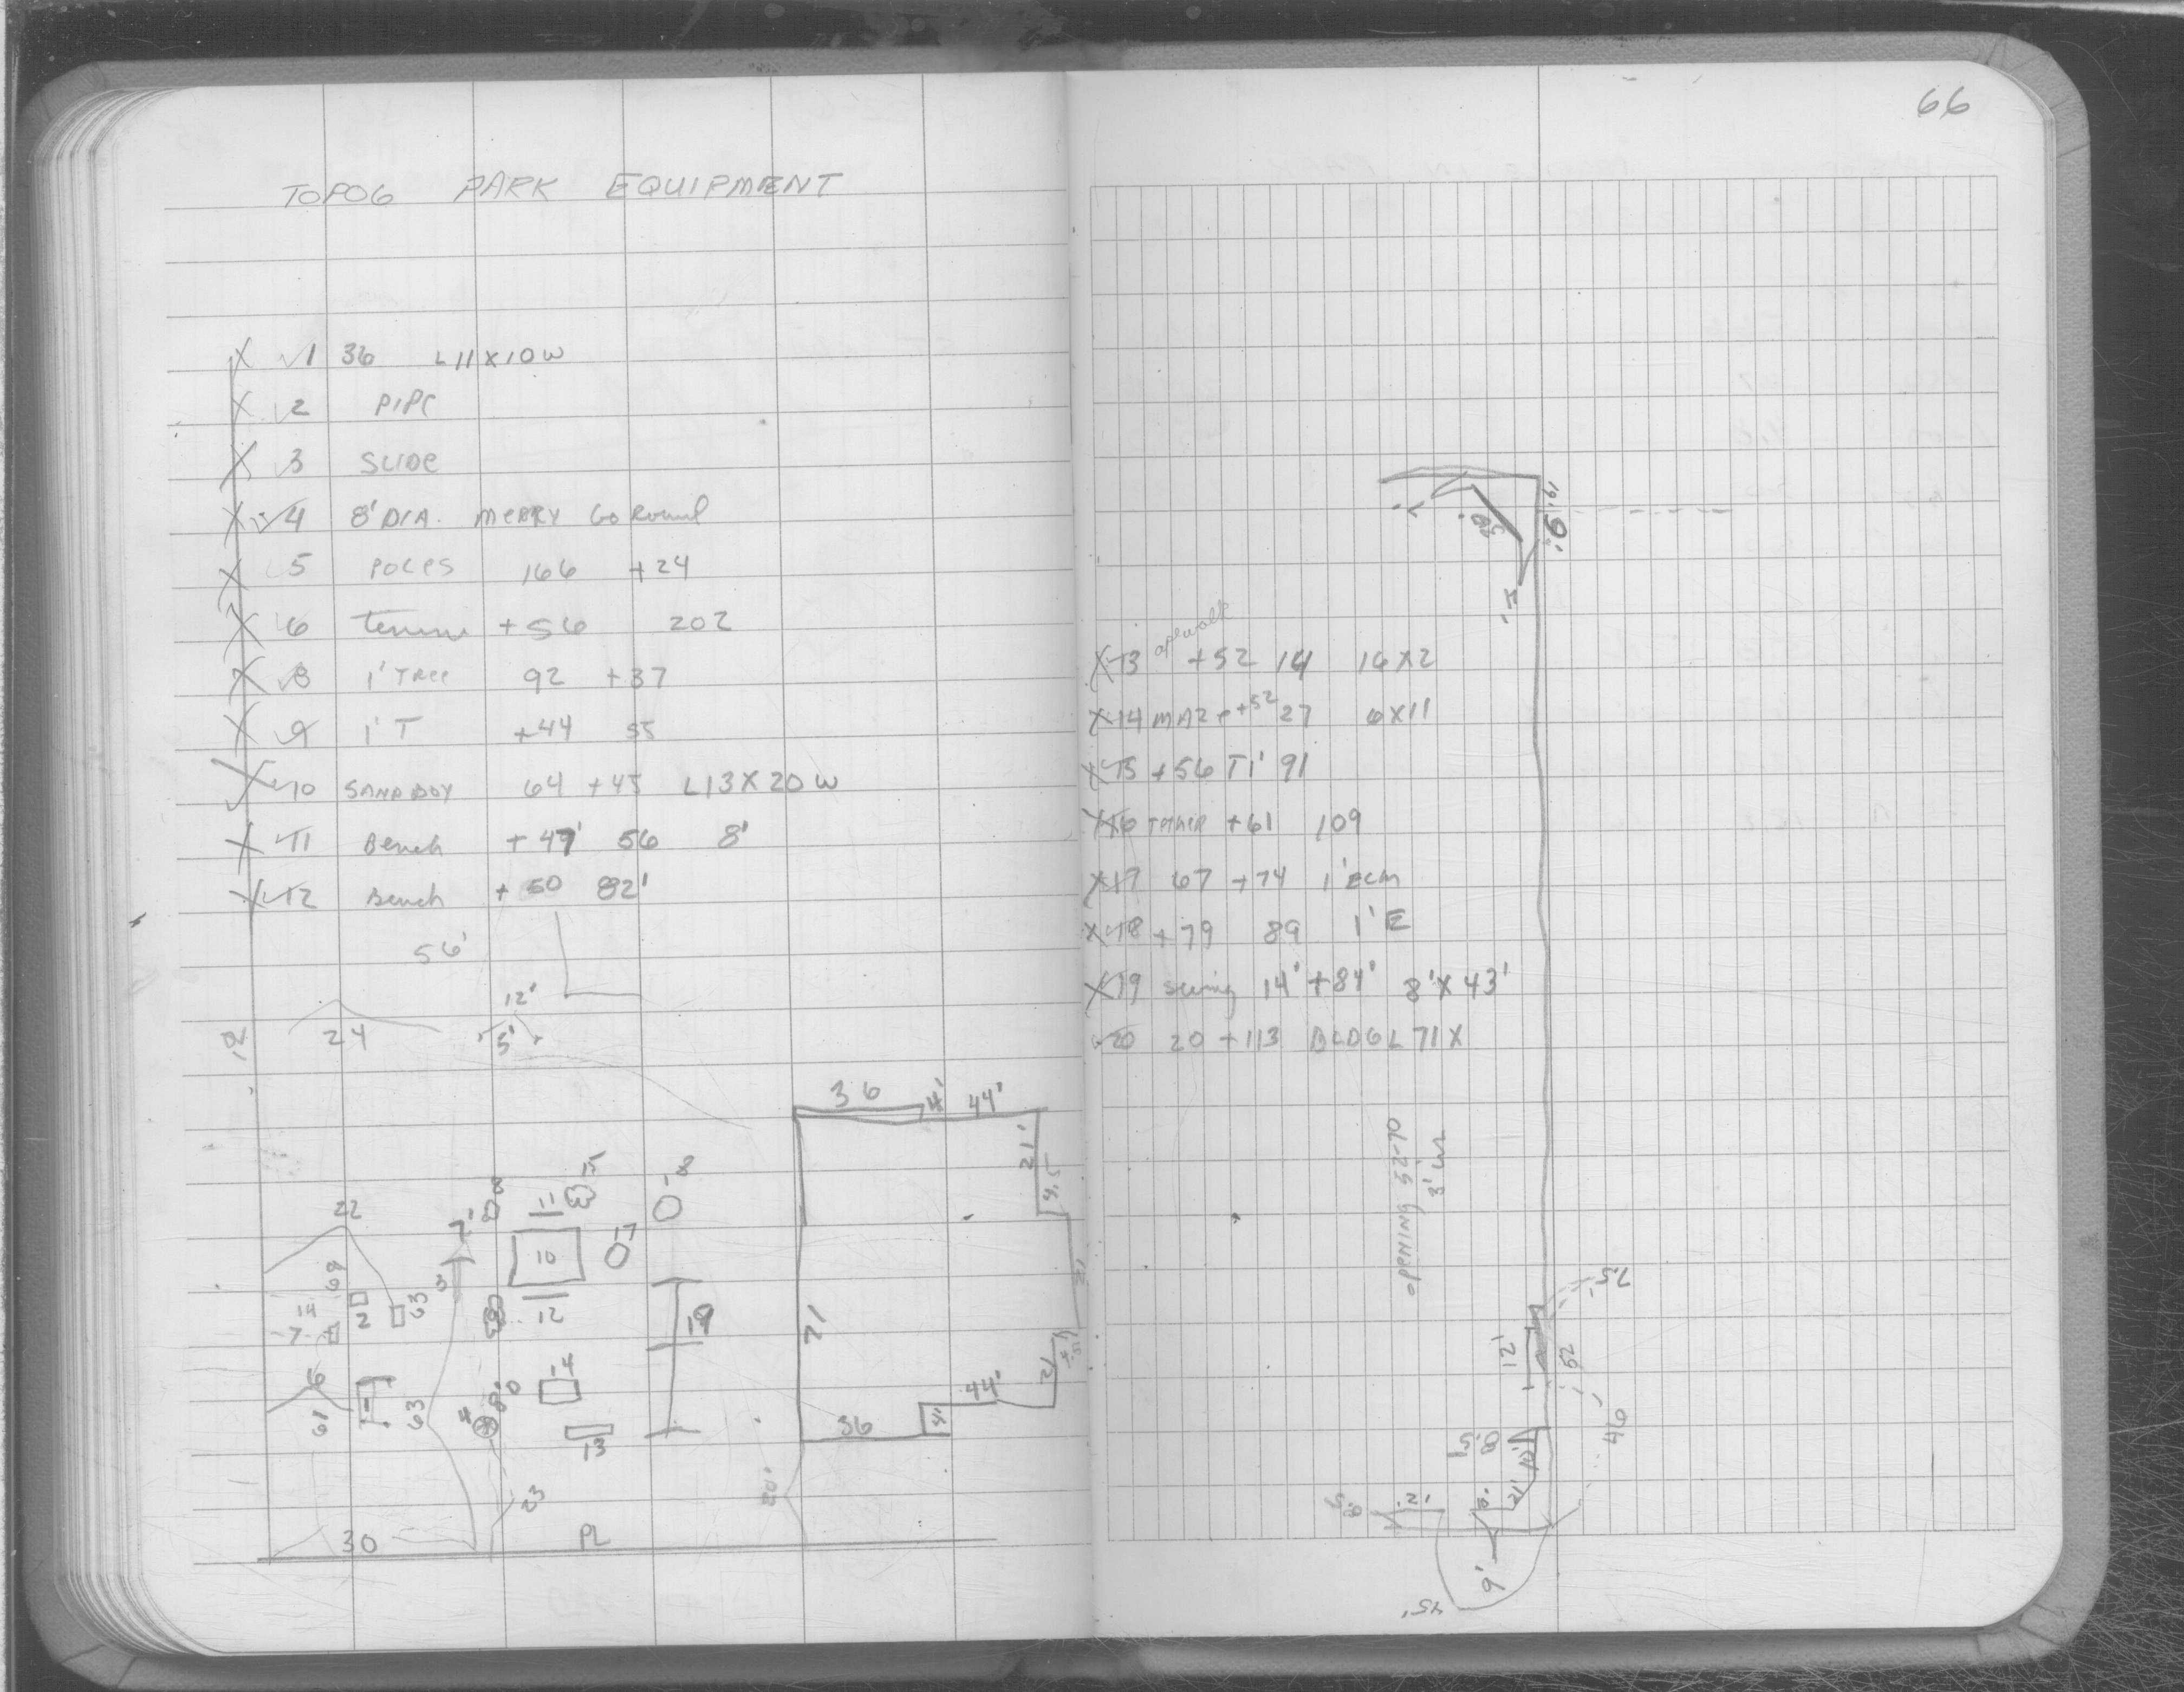 66
TOPOG PARK EQUIPMENT
X √1 36 L11X10W
X √2 PIPE
X √3 SLIDE
X √4 8' DIA. MERRY Go Round
X √5 POLES 166 +24
X √6 +56 202
X √8 1' TREE 92 +37
X √9 1' T +44 55
X √10 SANDBOX 64 +45 L13X20W
X √11 Bench +47' 56 8'
X √12 Bench +50 82'
56'
12'
24
5'
36 4' 44'
21'
4.5
22
7'
8
11
15
18
10
17
68
14
2
63
3
7
12
9
19
71
21
6
1
61
63
4
8'D
14
13
36
4'
44'
21
23
20'
30
PL
7'
6'
X √13 apewalk +52 14 16X2
X √14 MAZE +52 27 6X11
X √15 +56 T1' 91
X √16 +61 109
X √17 67 +74 1' ELM
X √18 +79 89 1' E
X √19 Swing 14' +84' 8'X43'
√20 20 +113 BLDG L71X
OPENING 52-70
7.5'
12'
52
46
8.5
21'
9'
45'